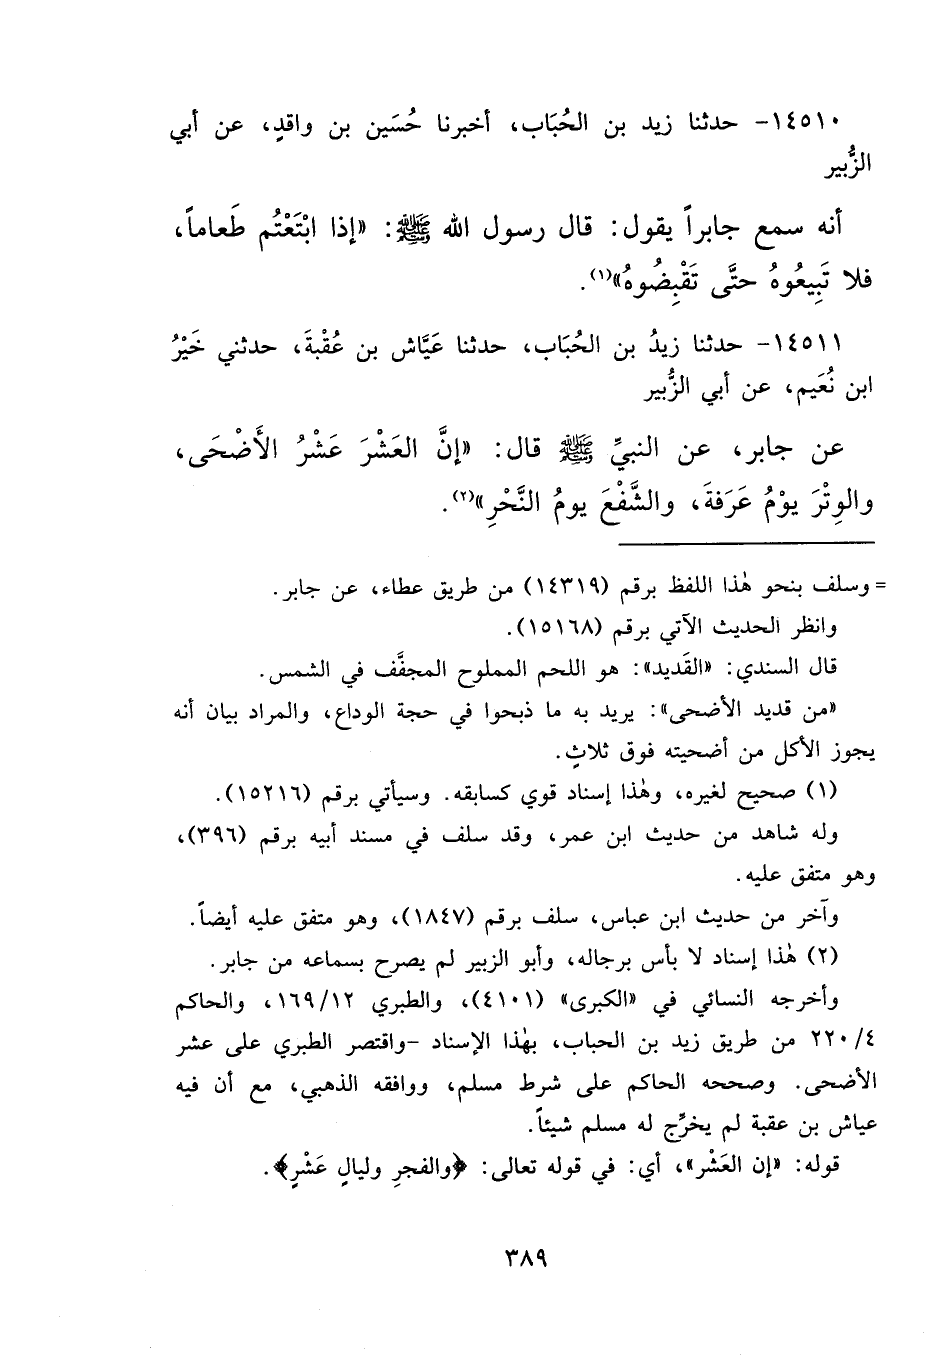 ١٤٥١٠- حدثنا زيد بن الحُبَاب، أخبرنا حُسَين بن واقدٍ، عن أبي
الزُّبير
أنه سمع جابراً يقول: قال رسول الله ﷺ: «إذا ابْتَعْتُم طَعاماً،
فلا تَبِيعُوهُ حتَّى تَقْبِضُوهُ»(١).
١٤٥١١- حدثنا زيدُ بن الحُبَاب، حدثنا عَيَّاش بن عُقْبةَ، حدثني خَيْرُ
ابن نُعَيم، عن أبي الزُّبير
عن جابر، عن النبيِّ ﷺ قال: «إنَّ العَشْرَ عَشْرُ الأَضْحَى،
والوِتْرَ يوْمُ عَرَفةَ، والشَّفْعَ يومُ النَّحْرِ»(٢).
= وسلف بنحو هٰذا اللفظ برقم (١٤٣١٩) من طريق عطاء، عن جابر.
وانظر الحديث الآتي برقم (١٥١٦٨).
قال السندي: «القَديد»: هو اللحم المملوح المجفَّف في الشمس.
«من قديد الأضحى»: يريد به ما ذبحوا في حجة الوداع، والمراد بيان أنه
يجوز الأكل من أضحيته فوق ثلاثٍ.
(١) صحيح لغيره، وهٰذا إسناد قوي كسابقه. وسيأتي برقم (١٥٢١٦).
وله شاهد من حديث ابن عمر، وقد سلف في مسند أبيه برقم (٣٩٦)،
وهو متفق عليه.
وآخر من حديث ابن عباس، سلف برقم (١٨٤٧)، وهو متفق عليه أيضاً.
(٢) هٰذا إسناد لا بأس برجاله، وأبو الزبير لم يصرح بسماعه من جابر.
وأخرجه النسائي في «الكبرى» (٤١٠١)، والطبري ١٦٩/١٢، والحاكم
٢٢٠/٤ من طريق زيد بن الحباب، بهٰذا الإسناد -واقتصر الطبري على عشر
الأضحى. وصححه الحاكم على شرط مسلم، ووافقه الذهبي، مع أن فيه
عياش بن عقبة لم يخرِّج له مسلم شيئاً.
قوله: «إن العَشْر»، أي: في قوله تعالى: ﴿والفجرِ وليالٍ عَشْرٍ﴾.
٣٨٩